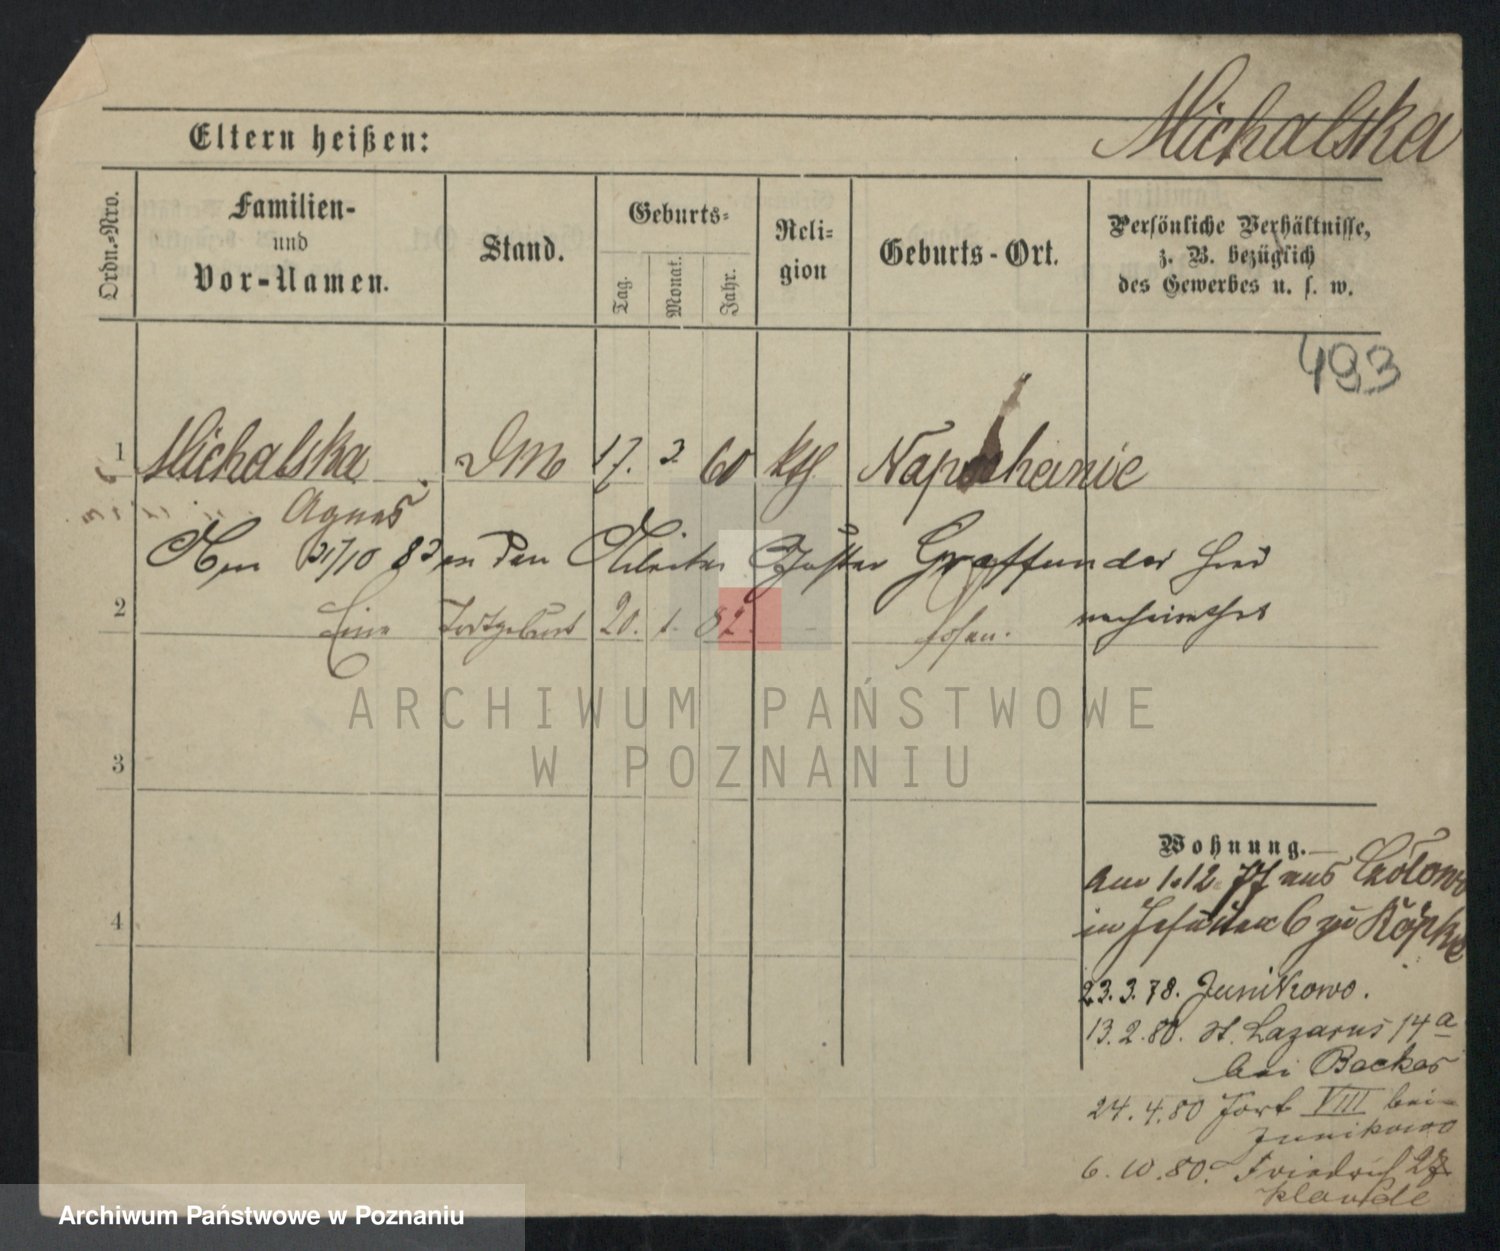 Michalska
Eltern heißen:
Ordn.-Nro.
Familien-
und
Vor-Namen.
Stand.
Geburts-
Tag.
Monat.
Jahr.
Reli-
gion
Geburts-Ort.
Persönliche Verhältnisse,
z. B. bezüglich
des Gewerbes u. s. w.
493
1 Michalska 17. 3. 60 kth
Agnes
31/10 83 an den Graffunder
2 Eine Todtgeburt 20. 1. 82. Posen. verheirathet
3
4
Wohnung.
Am 1.12. 77 aus
in Jesuiten 6 zu
23.3.78. Junikowo.
13.2.80. St. Lazarus 14a
bei Backer
24.4.80 Fort VIII bei
Junikowo
6.10.80. Friedrich
ARCHIWUM PAŃSTWOWE
W POZNANIU
Archiwum Państwowe w Poznaniu